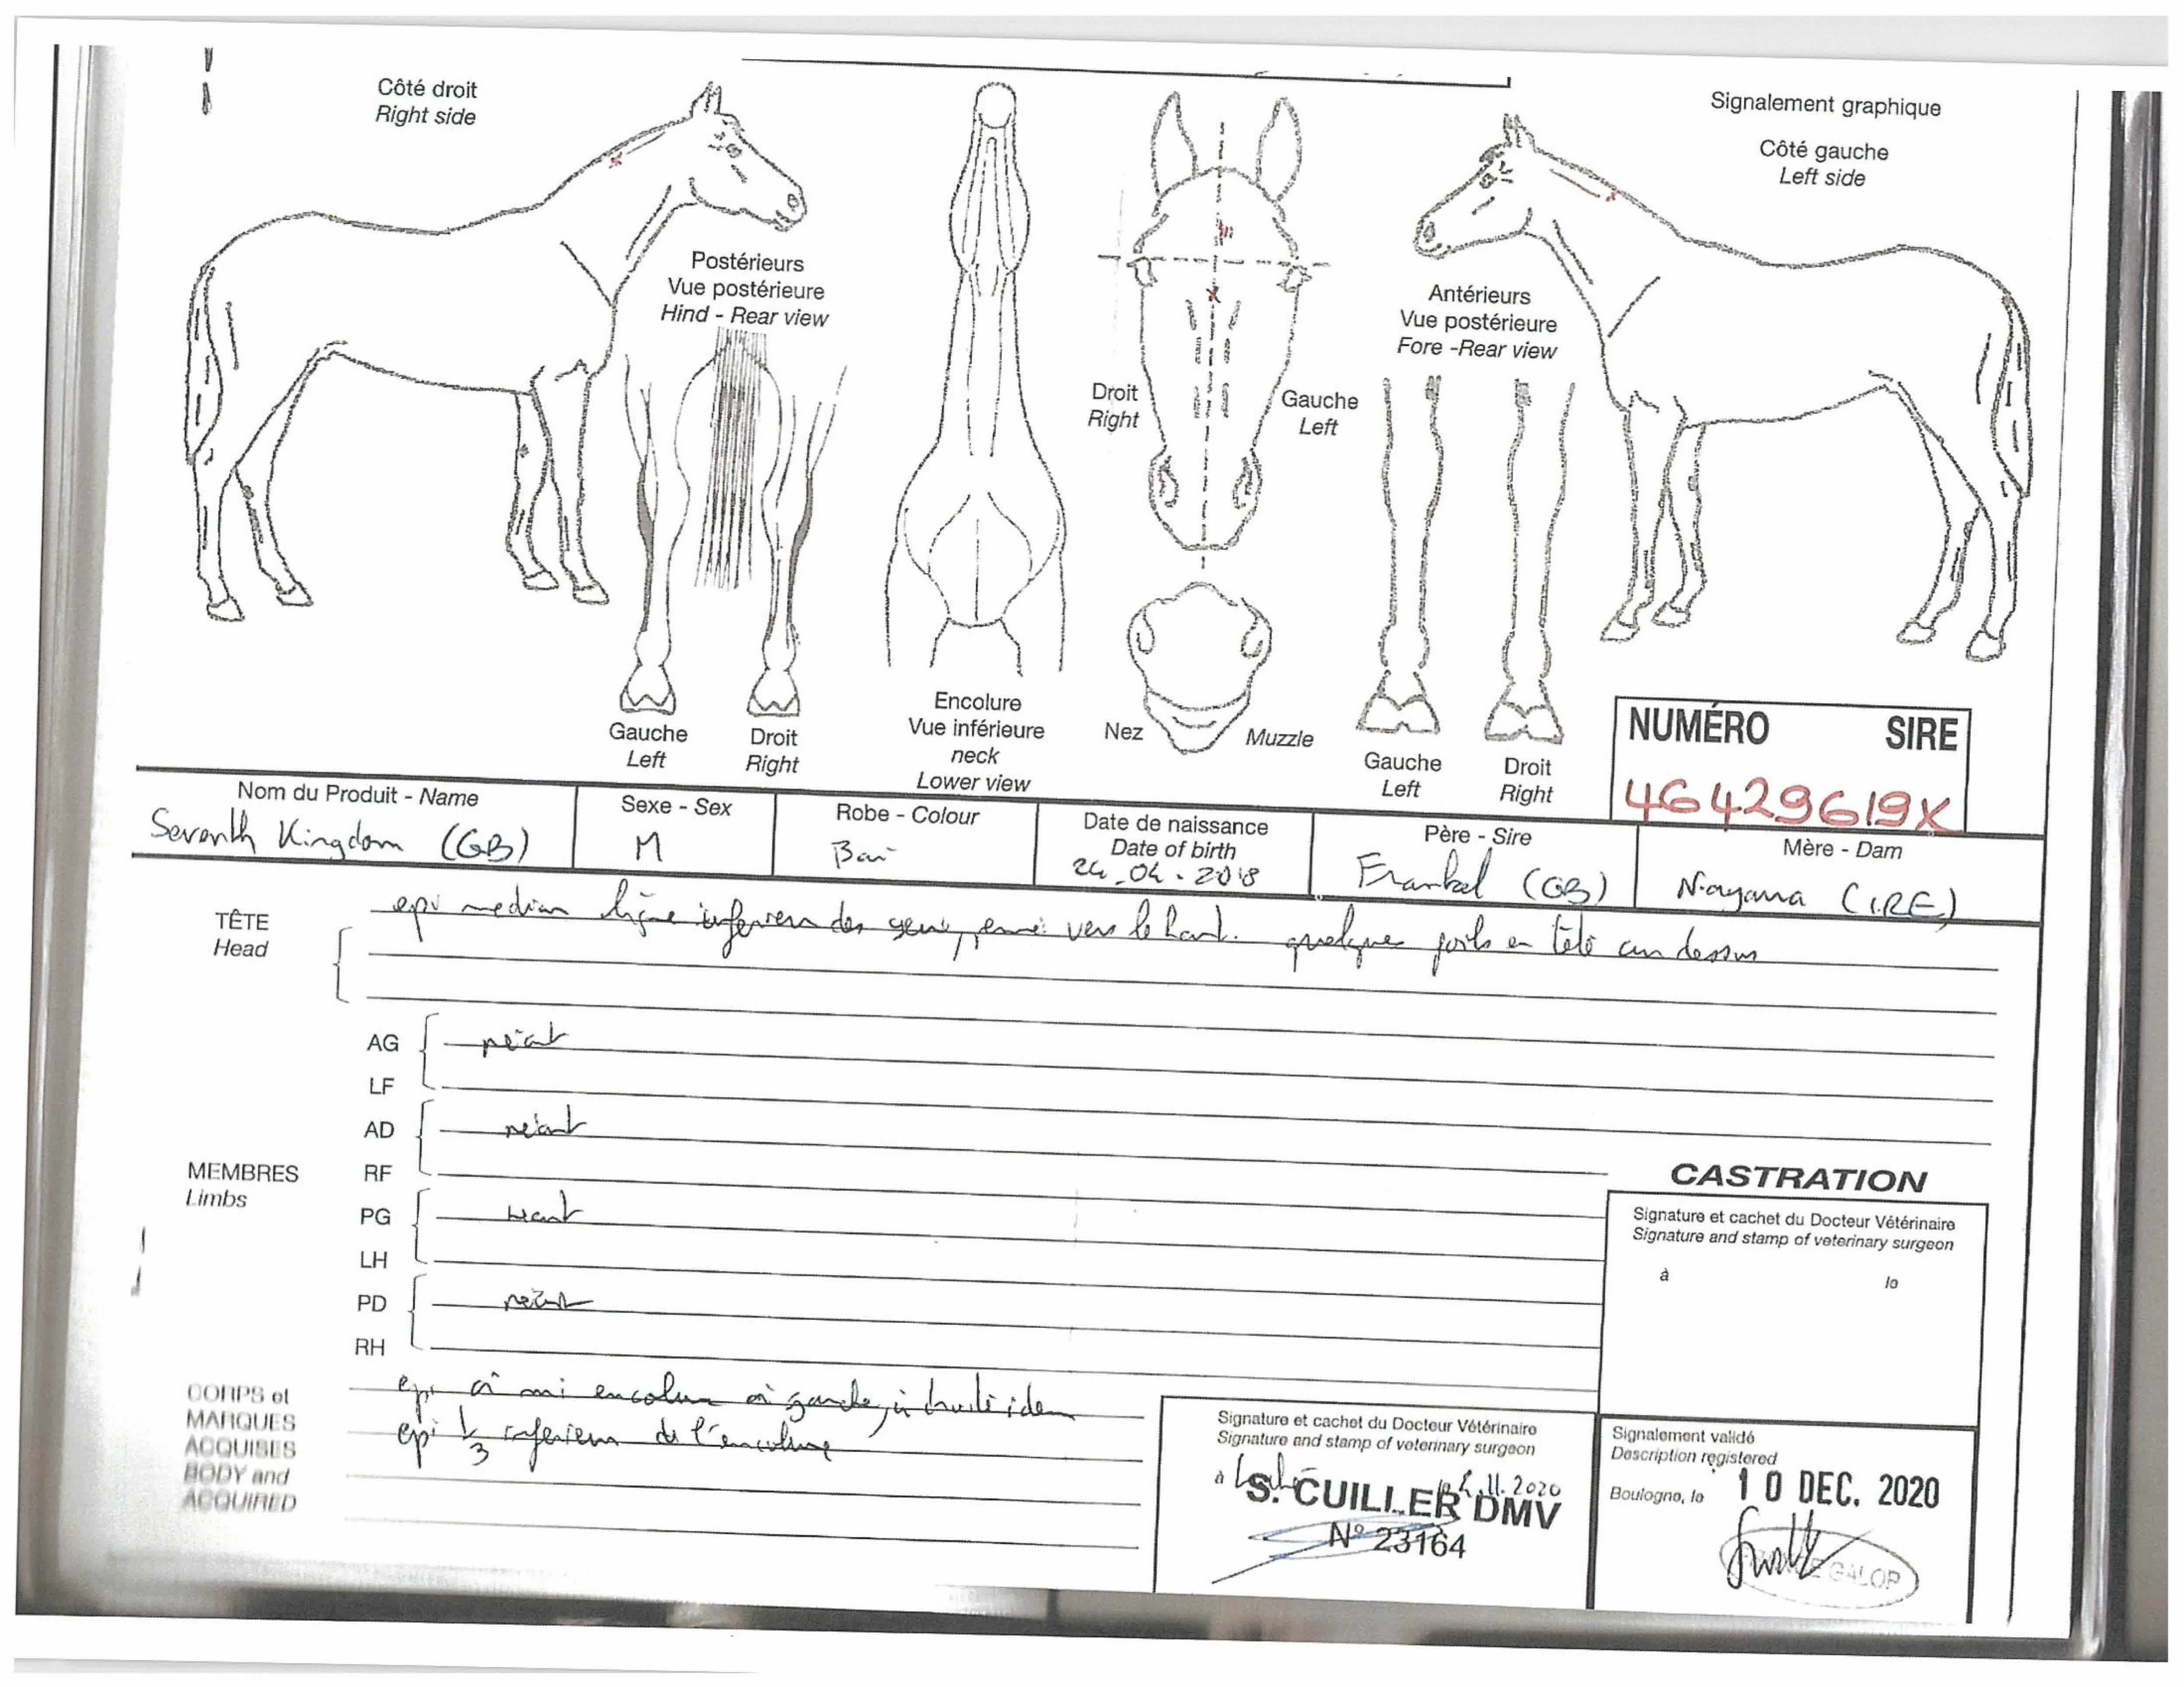 Côté droit
Right side
Signalement graphique
Côté gauche
Left side
Postérieurs
Vue postérieure
Hind - Rear view
Antérieurs
Vue postérieure
Fore -Rear view
Droit
Right
Gauche
Left
Gauche
Left
Droit
Right
Encolure
Vue inférieure
neck
Lower view
Nez
Muzzle
Gauche
Left
Droit
Right
NUMÉRO SIRE
46429619X
Nom du Produit - Name
Seventh Kingdom (GB)
Sexe - Sex
M
Robe - Colour
Bai
Date de naissance
Date of birth
24-04-2018
Père - Sire
Frankel (GB)
Mère - Dam
Nayana (IRE)
TÊTE
Head
epi median ligne inferieur des yeux, vers le haut. quelques poils en tete au dessus
AG
LF
néant
AD
RF
néant
MEMBRES
Limbs
PG
LH
néant
PD
RH
néant
CASTRATION
Signature et cachet du Docteur Vétérinaire
Signature and stamp of veterinary surgeon
à le
CORPS et
MARQUES
ACQUISES
BODY and
ACQUIRED
epi à mi encolure à gauche, à droite idem
epi 1/3 inferieur de l'encolure
Signature et cachet du Docteur Vétérinaire
Signature and stamp of veterinary surgeon
à
11.2020
S. CUILLER DMV
N° 23164
Signalement validé
Description registered
Boulogne, le 10 DEC. 2020
GALOP